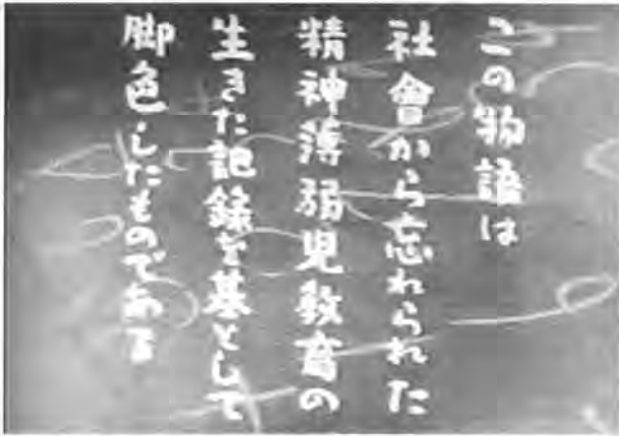 この物語は
社會から忘れられた
精神薄弱児教育の
生きた記録を基として
脚色したものである